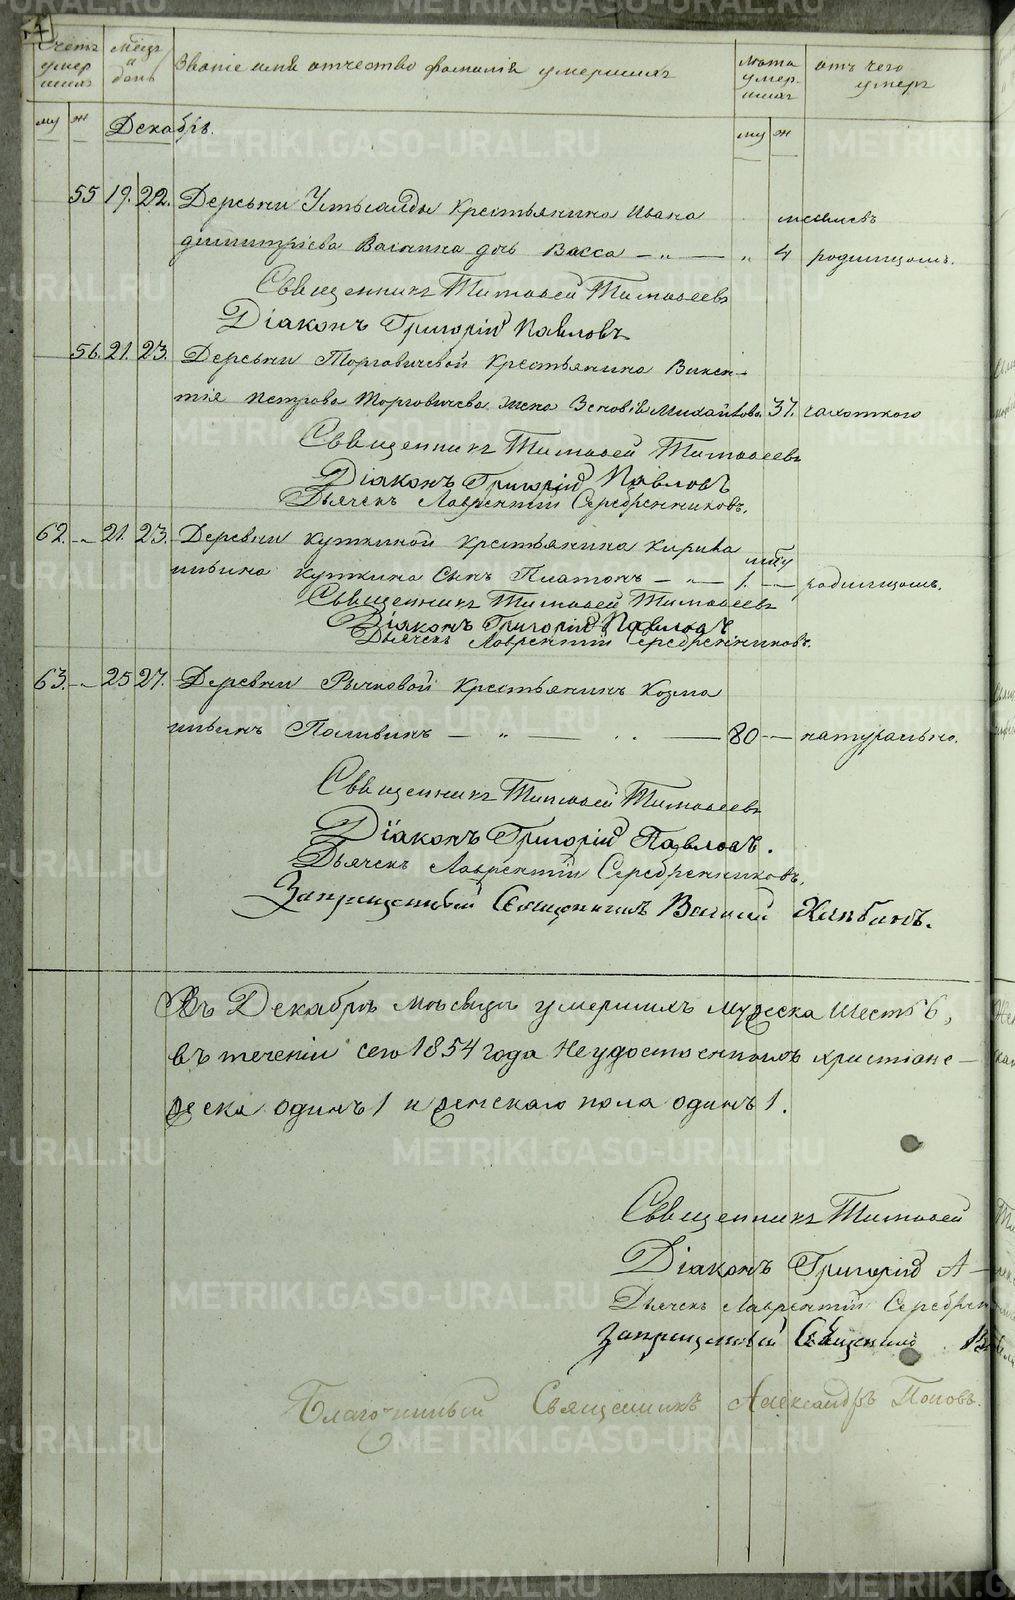 Счетъ умер шихъ
Мѣсяцъ и день
Званіе имя отчество фамилія умершихъ
Лѣта умер шихъ
отъ чего умеръ
му ж
Декабрь.
му ж
55 19. 22. Деревни Крестьянина Ивана
димитріева дочь Васса — „ — „ 4 родимцомъ.
Священникъ Тимофей Тимофеевъ
Діаконъ Григорій Павловъ
56. 21. 23. Деревни Торговичевой Крестьянина Викен-
тія Петрова Торговичева жена Зеновія Михайлова. 37. чахоткою
Священникъ Тимофей Тимофеевъ
Діаконъ Григорій Павловъ
Дьячекъ Лаврентій Серебренниковъ.
62. - 21. 23. Деревни Куткиной Крестьянина Кирила
ильина Куткина Сынъ Платонъ — „ — 1. — родимцомъ.
Священникъ Тимофей Тимофеевъ
Діаконъ Григорій Павловъ
Дьячекъ Лаврентій Серебренниковъ.
63. - 25 27. Деревни Рычковой Крестьянинъ Козма
ильинъ — „ — 80 — натурально.
Священникъ Тимофей Тимофеевъ
Діаконъ Григорій Павловъ.
Дьячекъ Лаврентій Серебренниковъ.
Запрещенный Священникъ Василій
Въ Декабрѣ мѣсяцѣ умершихъ мужеска Шесть 6,
въ теченіи сего 1854 года Неудостоенныхъ христіане —
ска одинъ 1 и женскаго пола одинъ 1.
Священникъ Тимофей
Діаконъ Григорій
Дьячекъ Лаврентій Серебрен
Запрещенный Священникъ
Благочинный Священникъ Александръ Поповъ.
METRIKI.GASO-URAL.RU